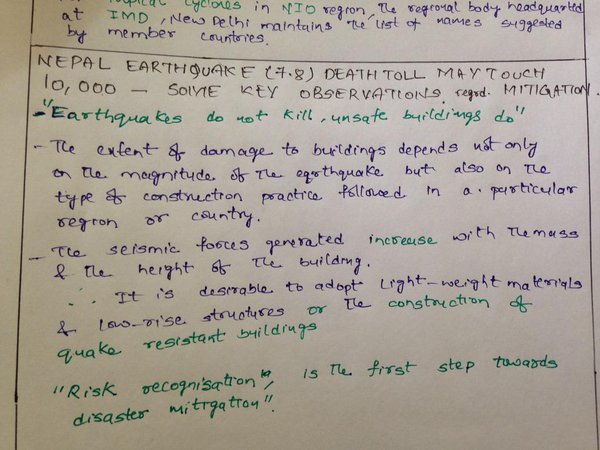 tropical cyclones in NIO region, the regional body headquarted
at IMD, New Delhi maintains the list of names suggested
by member countries.
NEPAL EARTHQUAKE (7.8) DEATH TOLL MAY TOUCH
10,000 — SOME KEY OBSERVATIONS regrd. MITIGATION.
- "Earthquakes do not kill, unsafe buildings do"
- The extent of damage to buildings depends not only
on the magnitude of the earthquake but also on the
type of construction practice followed in a particular
region or country.
- The seismic forces generated increase with the mass
& the height of the building.
∴ It is desirable to adopt light-weight materials
& low-rise structures or the construction of
quake resistant buildings
"Risk recognisation", is the first step towards
disaster mitigation".